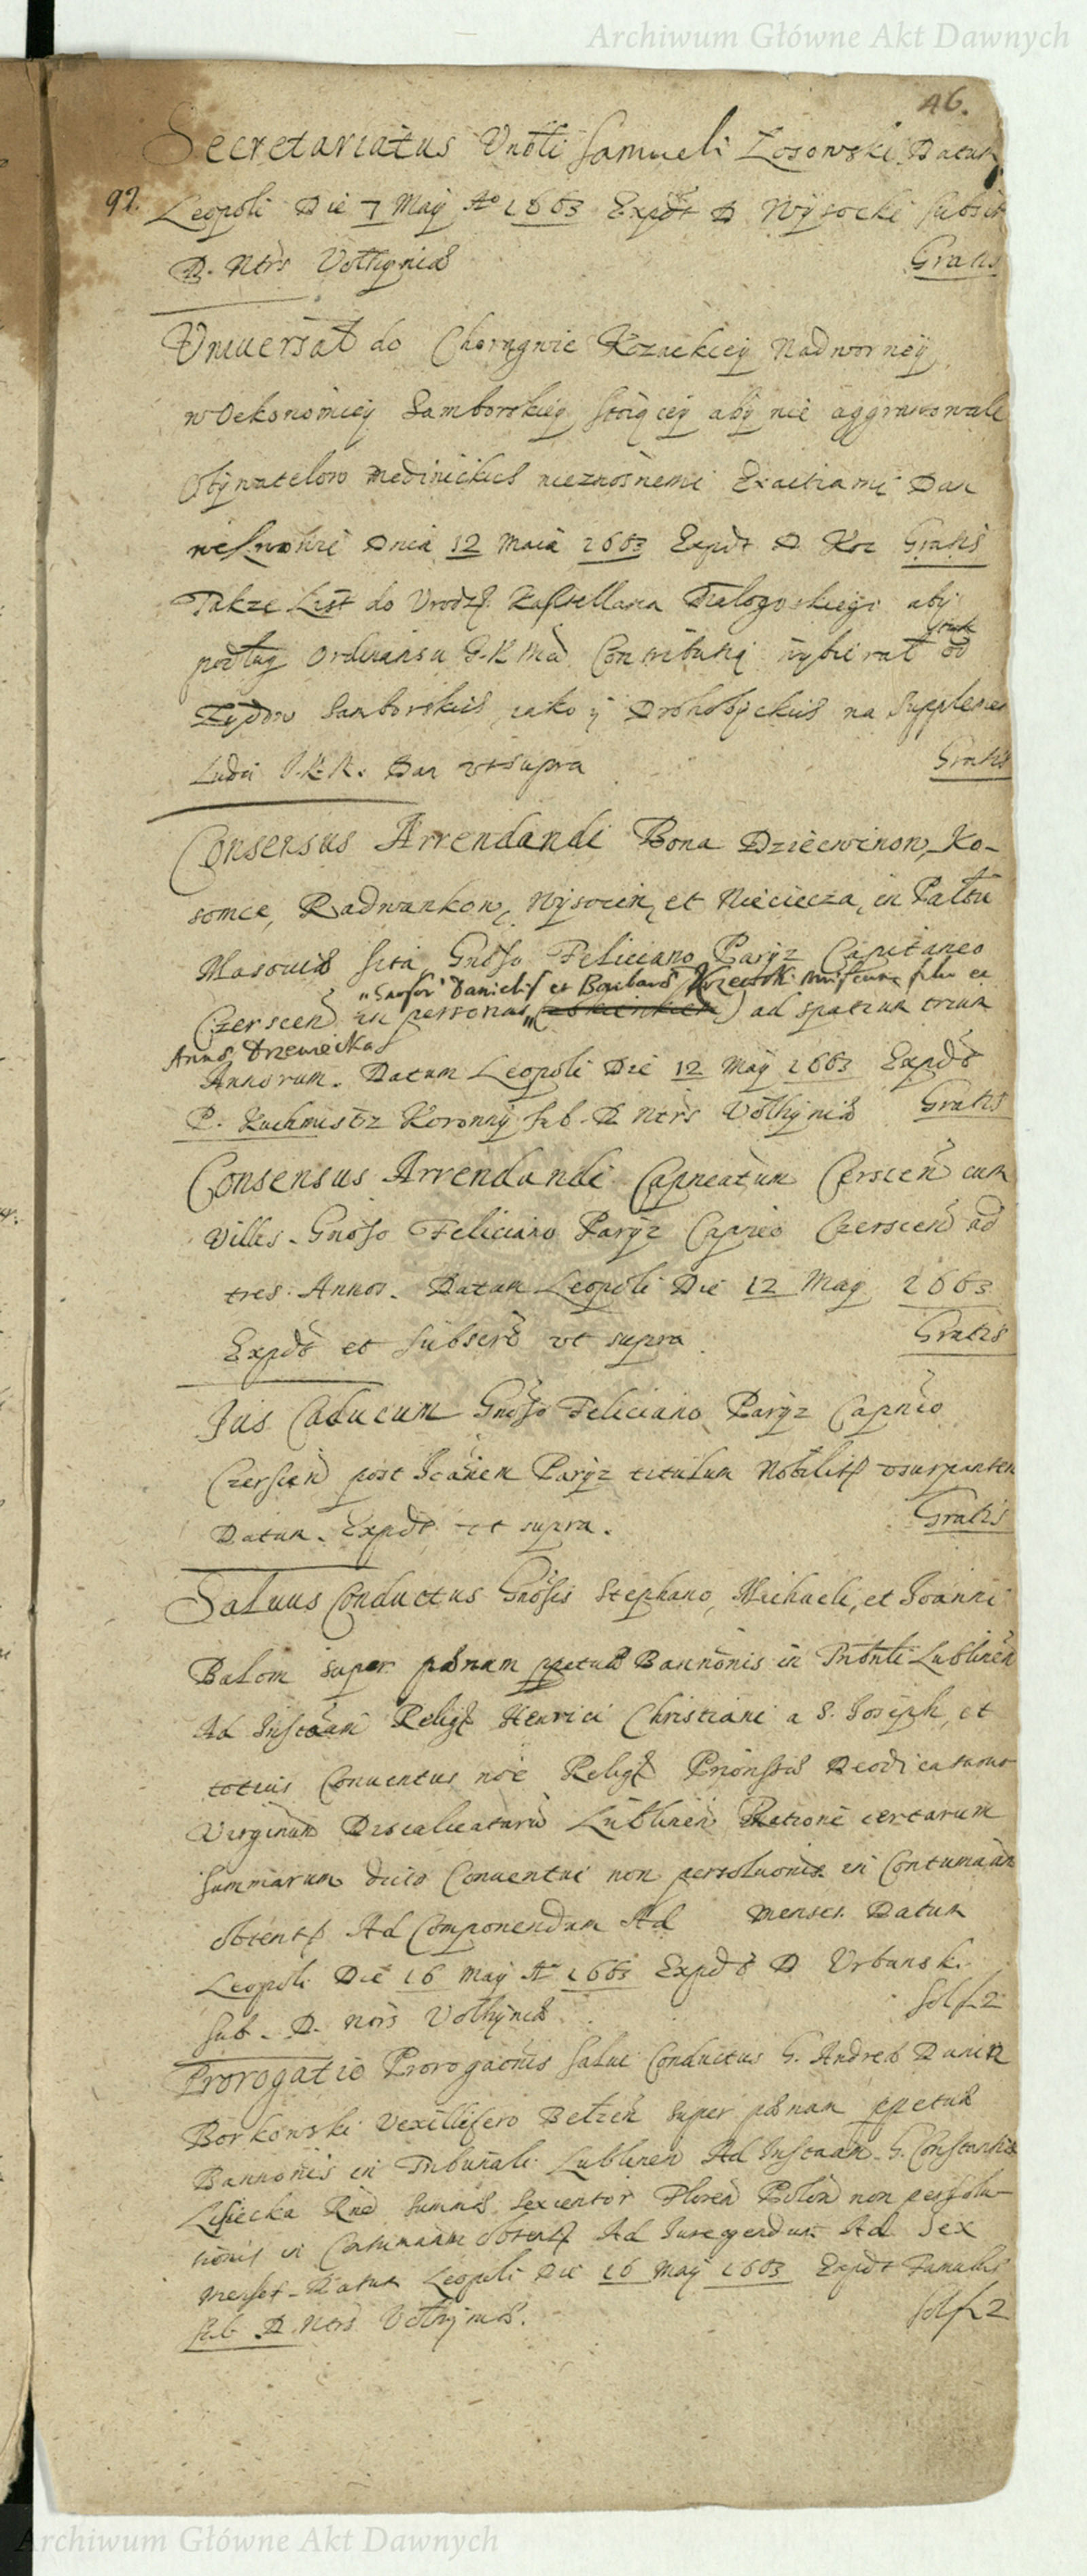 Archiwum Główne Akt Dawnych
46.
Secretariatus Vrobli Samueli Losowski Datum
97. Leopoli Die 7 Maÿ Ao 1663 Expdt D Wÿsocki subscr
D. Ntrs Volhÿniæ Gratis
Vniuersał do Chorągwie Kozackieÿ Nadworneÿ
w Oekonomieÿ Samborskieÿ stoiąceÿ abÿ nie aggrauowali
Obÿwatelow Medinickich nieznosnemi Exactiami Dan
we Lwowie Dnia 12 Maia 1663 Expdt D Koz Gratis
Takze List do Vrodz. Kasztellana abÿ
podług Ordinansu J.K Mci Contributią wÿbierał tak od
Zÿdow Samborskich jako ÿ Drohobÿckich na Supplement
Ludzi J.K.M. Dan vt supra Gratis
Consensus Arrendandi Bona Dziecinow, Ko-
somce, Radwankow, Wÿsocin, et Nieciecza, in Palatu
Masouiæ sita Gnoso Feliciano Parÿz Capitaneo
Gnosor Danielis et Barbaræ
Czerscen in personas ad spatium trium
Annæ Drzewieckæ
Annorum. Datum Leopoli Die 12 Maÿ 1663 Expdt
P. Kuchmistrz Koronnÿ sub. D Ntrs Volhÿniæ Gratis
Consensus Arrendandi Capneatum Cerscen cum
Villis. Gnoso Feliciano Parÿz Capneo Czerscen ad
tres Annos. Datum Leopoli Die 12 Maÿ 1663
Expdt et subscrt vt supra Gratis
Jus Caducum Gnoso Feliciano Parÿz Capneo
Czerscen post Joannem Parÿz titulum Nobilits vsurpantem
Datum. Expdt vt supra. Gratis
Saluus Conductus Gnosis Stephano, Michaeli, et Joanni
Balom super pœnam ppetuæ Bannonis in Tribnli Lublinen
Ad Instaām Religs Henrici Christiani a S. Joseph, et
totius Conuentus noe Religs Prionssæ Deo dicatarum
Virginum Discalceatarū Lublinen Ratione certarum
summarum dicto Conuentui non persoluonis in Contumaām
obtents Ad Componendum Ad menses. Datum
Leopoli Die 16 Maÿ Ao 1663 Expdt D Vrbanski
sub. D. Ntrs Volhÿniæ solf 2
Prorogatio Prorogaonis salui Conductus G. Andreæ Dunin
Borkowski Vexillifero Bełzen super pœnam ppetuæ
Bannonis in Tribunali Lublinen Ad Instaām G. Constantiæ
Lisiecka Rne summæ sexcentor Floren Polon non persolu-
tionis in Contumaām obtents Ad Jure agendum Ad Sex
menses. Datum Leopoli Die 16 Maÿ 1663 Expdt Famulus
sub D. Ntrs Volhÿniæ. solf 2
Archiwum Główne Akt Dawnych